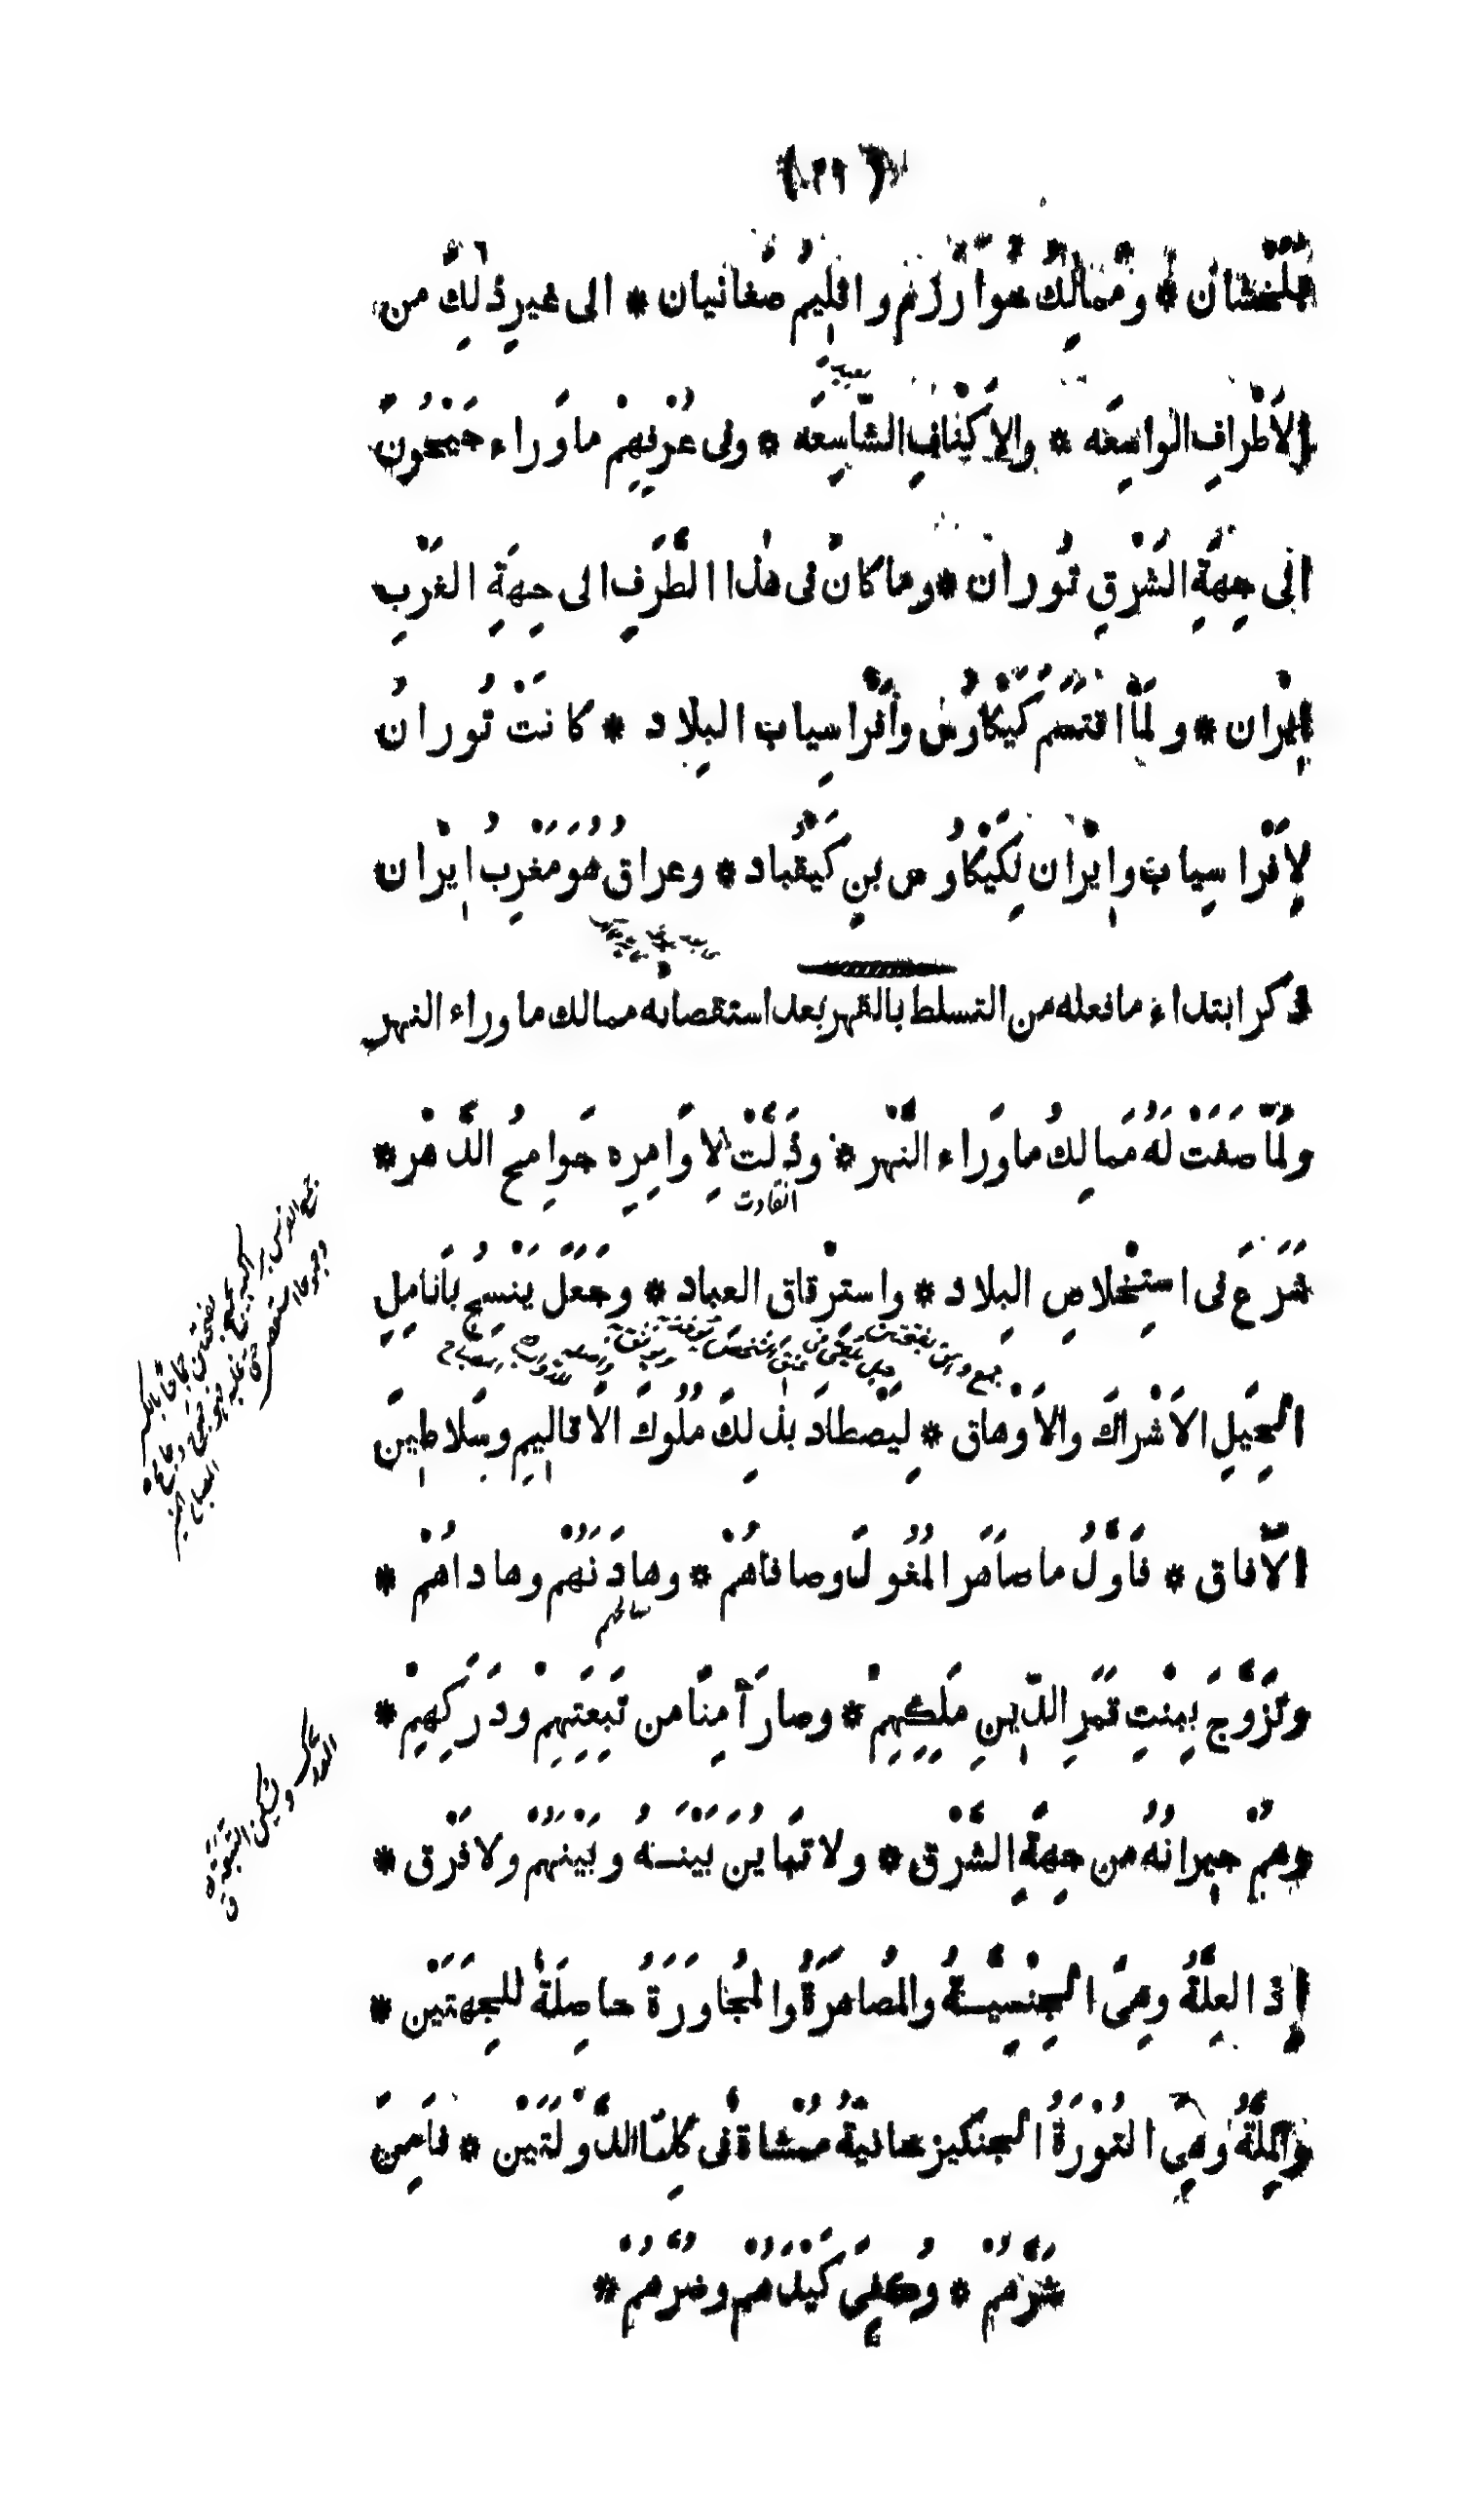 بَلَخْشان * ومَمالِكُ خُوَارَزْم واقليمُ صَغانيان * الى غيرِ ذٰلِكَ من
الاَطْرافِ الواسِعَه * والاَكْنافِ الشّاسِعَه * وفى عُرْفِهِمْ ماوَراء جَيْحُونَ
الى جِهَةِ الشَرْقِ تُوران * وما كانَ فى هٰذا الطَّرَفِ الى جِهَةِ الغَرْبِ
اِيْران * ولَمَّا اقتسَمَ كَيْكاوُس وأَفْراسِياب البِلاد * كانَتْ تُورانُ
لِاَفْراسِياب وايْران لِكَيْكاوُس بنِ كَيْقُباد * وعراقُ هُوَ مَغْرِبُ ايْران
ذكر ابتداء ما فعله من التسلط بالقهر بعد استقصائه ممالك ما وراء النهر
ولَمَّا صَفَتْ لَهُ مَمالِكُ ماوَراء النَّهر * وذَلَّتْ لِاَوَامِرِه جَوامِحُ الدَّهْر *
انقادت
شَرَعَ فى استِخْلاصِ البِلاد * واستِرْقاق العباد * وجَعَلَ يَنْسِجُ بأنامِلِ
الحِيَلِ الاَشْراكَ والاَوْهاق * لِيَصْطادَ بذٰلِكَ مُلُوكَ الاَقاليمِ وسَلاطِينَ
الآفاق * فأوَّلُ ما صاهَرَ المُغُولَ وصافاهُمْ * وهادَنَهُمْ وهاداهُمْ *
وتَزَوَّجَ بِبِنْتِ قَمَرِ الدّينِ مَلِكِهِمْ * وصارَ آمِنًا من تَبِعَتِهِمْ ودَرَكِهِمْ *
وهُمْ جيرانُهُ من جِهَةِ الشَّرْق * ولا تَبايُنَ بَيْنَـهُ وبَيْنَهُمْ ولا فَرْق *
إذ العِلَّةُ وهِىَ الجِنْسِيَّـةُ والمُصاهَرَةُ والمُجاوَرَةُ حاصِلَةٌ لِلجِهَتَيْن *
والمِلَّةُ وهِىَ التُورَةُ الجنكيزخانيَّةُ مُمْشاةٌ فى كِلتا الدَّوْلَتَيْن * فأَمِنَ
شَرَّهُمْ * وكُفِىَ كَيْدَهُمْ وضُرَّهُمْ *